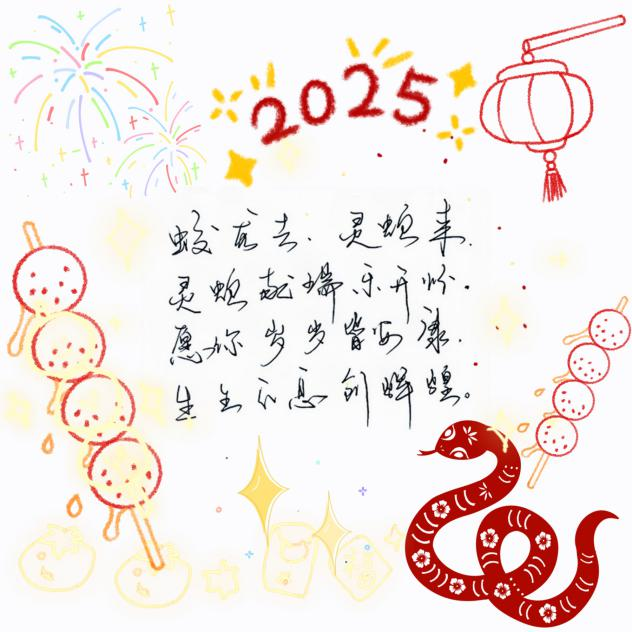 2025
蛟龙去、灵蛇来.
灵蛇献瑞乐开怀.
愿你岁岁皆安康.
生生不息创辉煌。